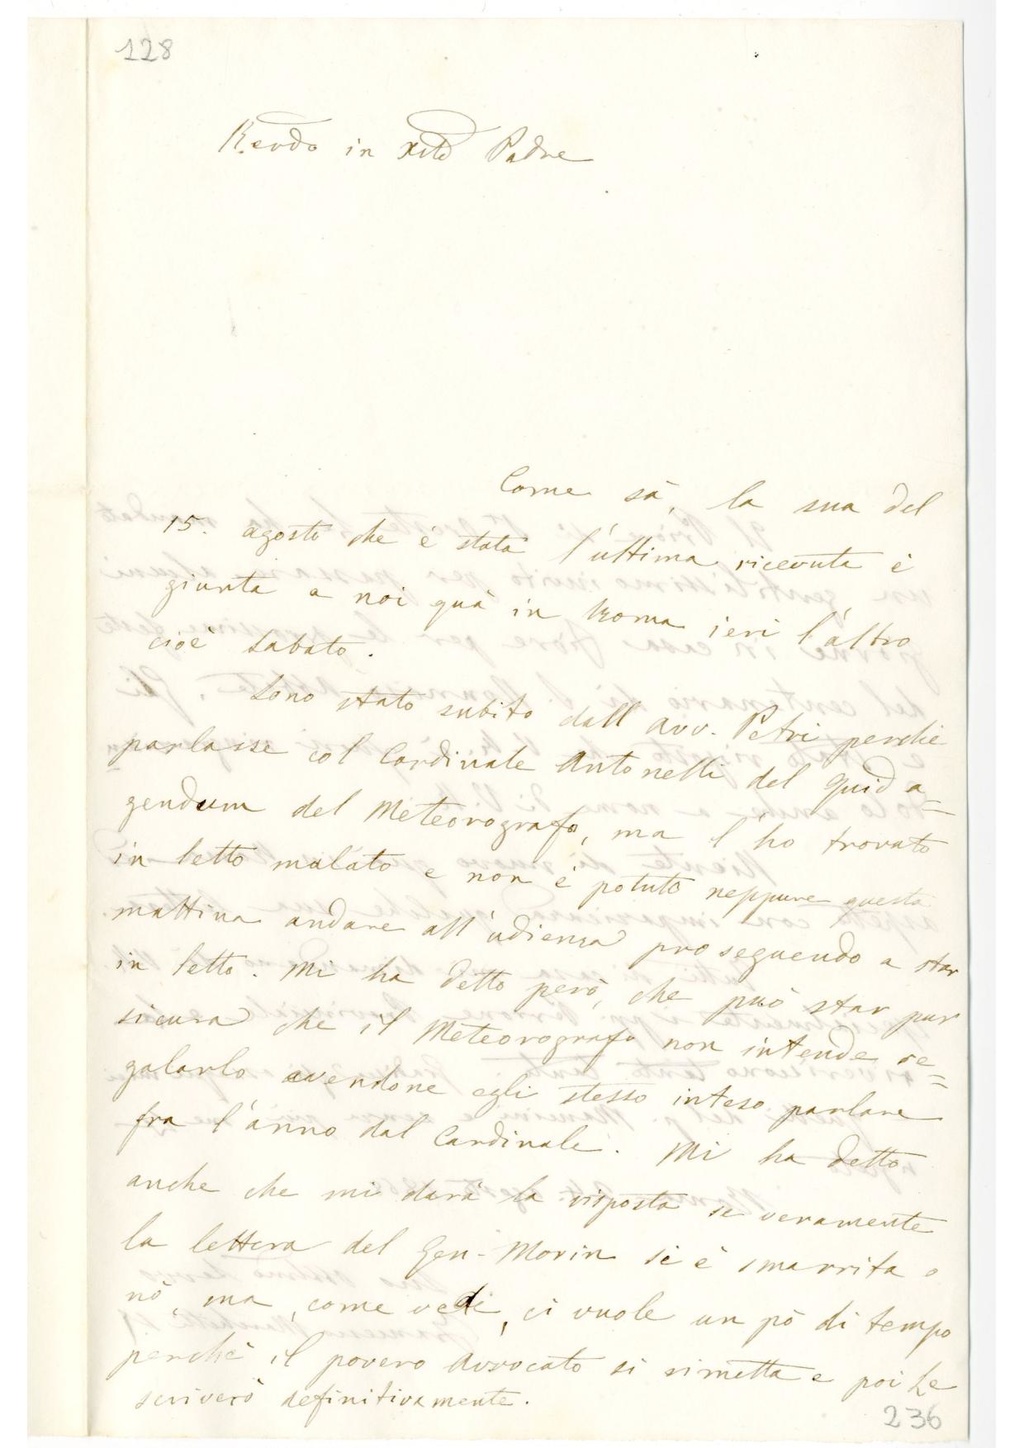 128
Revdo in Xsto Padre
Come sà, la sua del
15. agosto che è stata l'ultima ricevuta è
giunta a noi quà in Roma ieri l'altro
cioè Sabato.
Sono stato subito dall avv. Petri perchè
parlasse col Cardinale Antonelli del quid a=
gendum del Meteorografo, ma l'ho trovato
in letto malato e non è potuto neppure questa
mattina andare all'udienza proseguendo a star
in letto. Mi ha detto però, che può star pur
sicura che il Meteorografo non intende re=
galarlo avendone egli stesso inteso parlare
fra l'anno dal Cardinale. Mi ha detto
anche che mi darà la risposta se veramente
la lettera del Gen. Morin si è smarrita o
nò, ma, come vedi, ci vuole un pò di tempo
perchè il povero Avvocato si rimetta e poi Le
scriverò definitivamente.
236